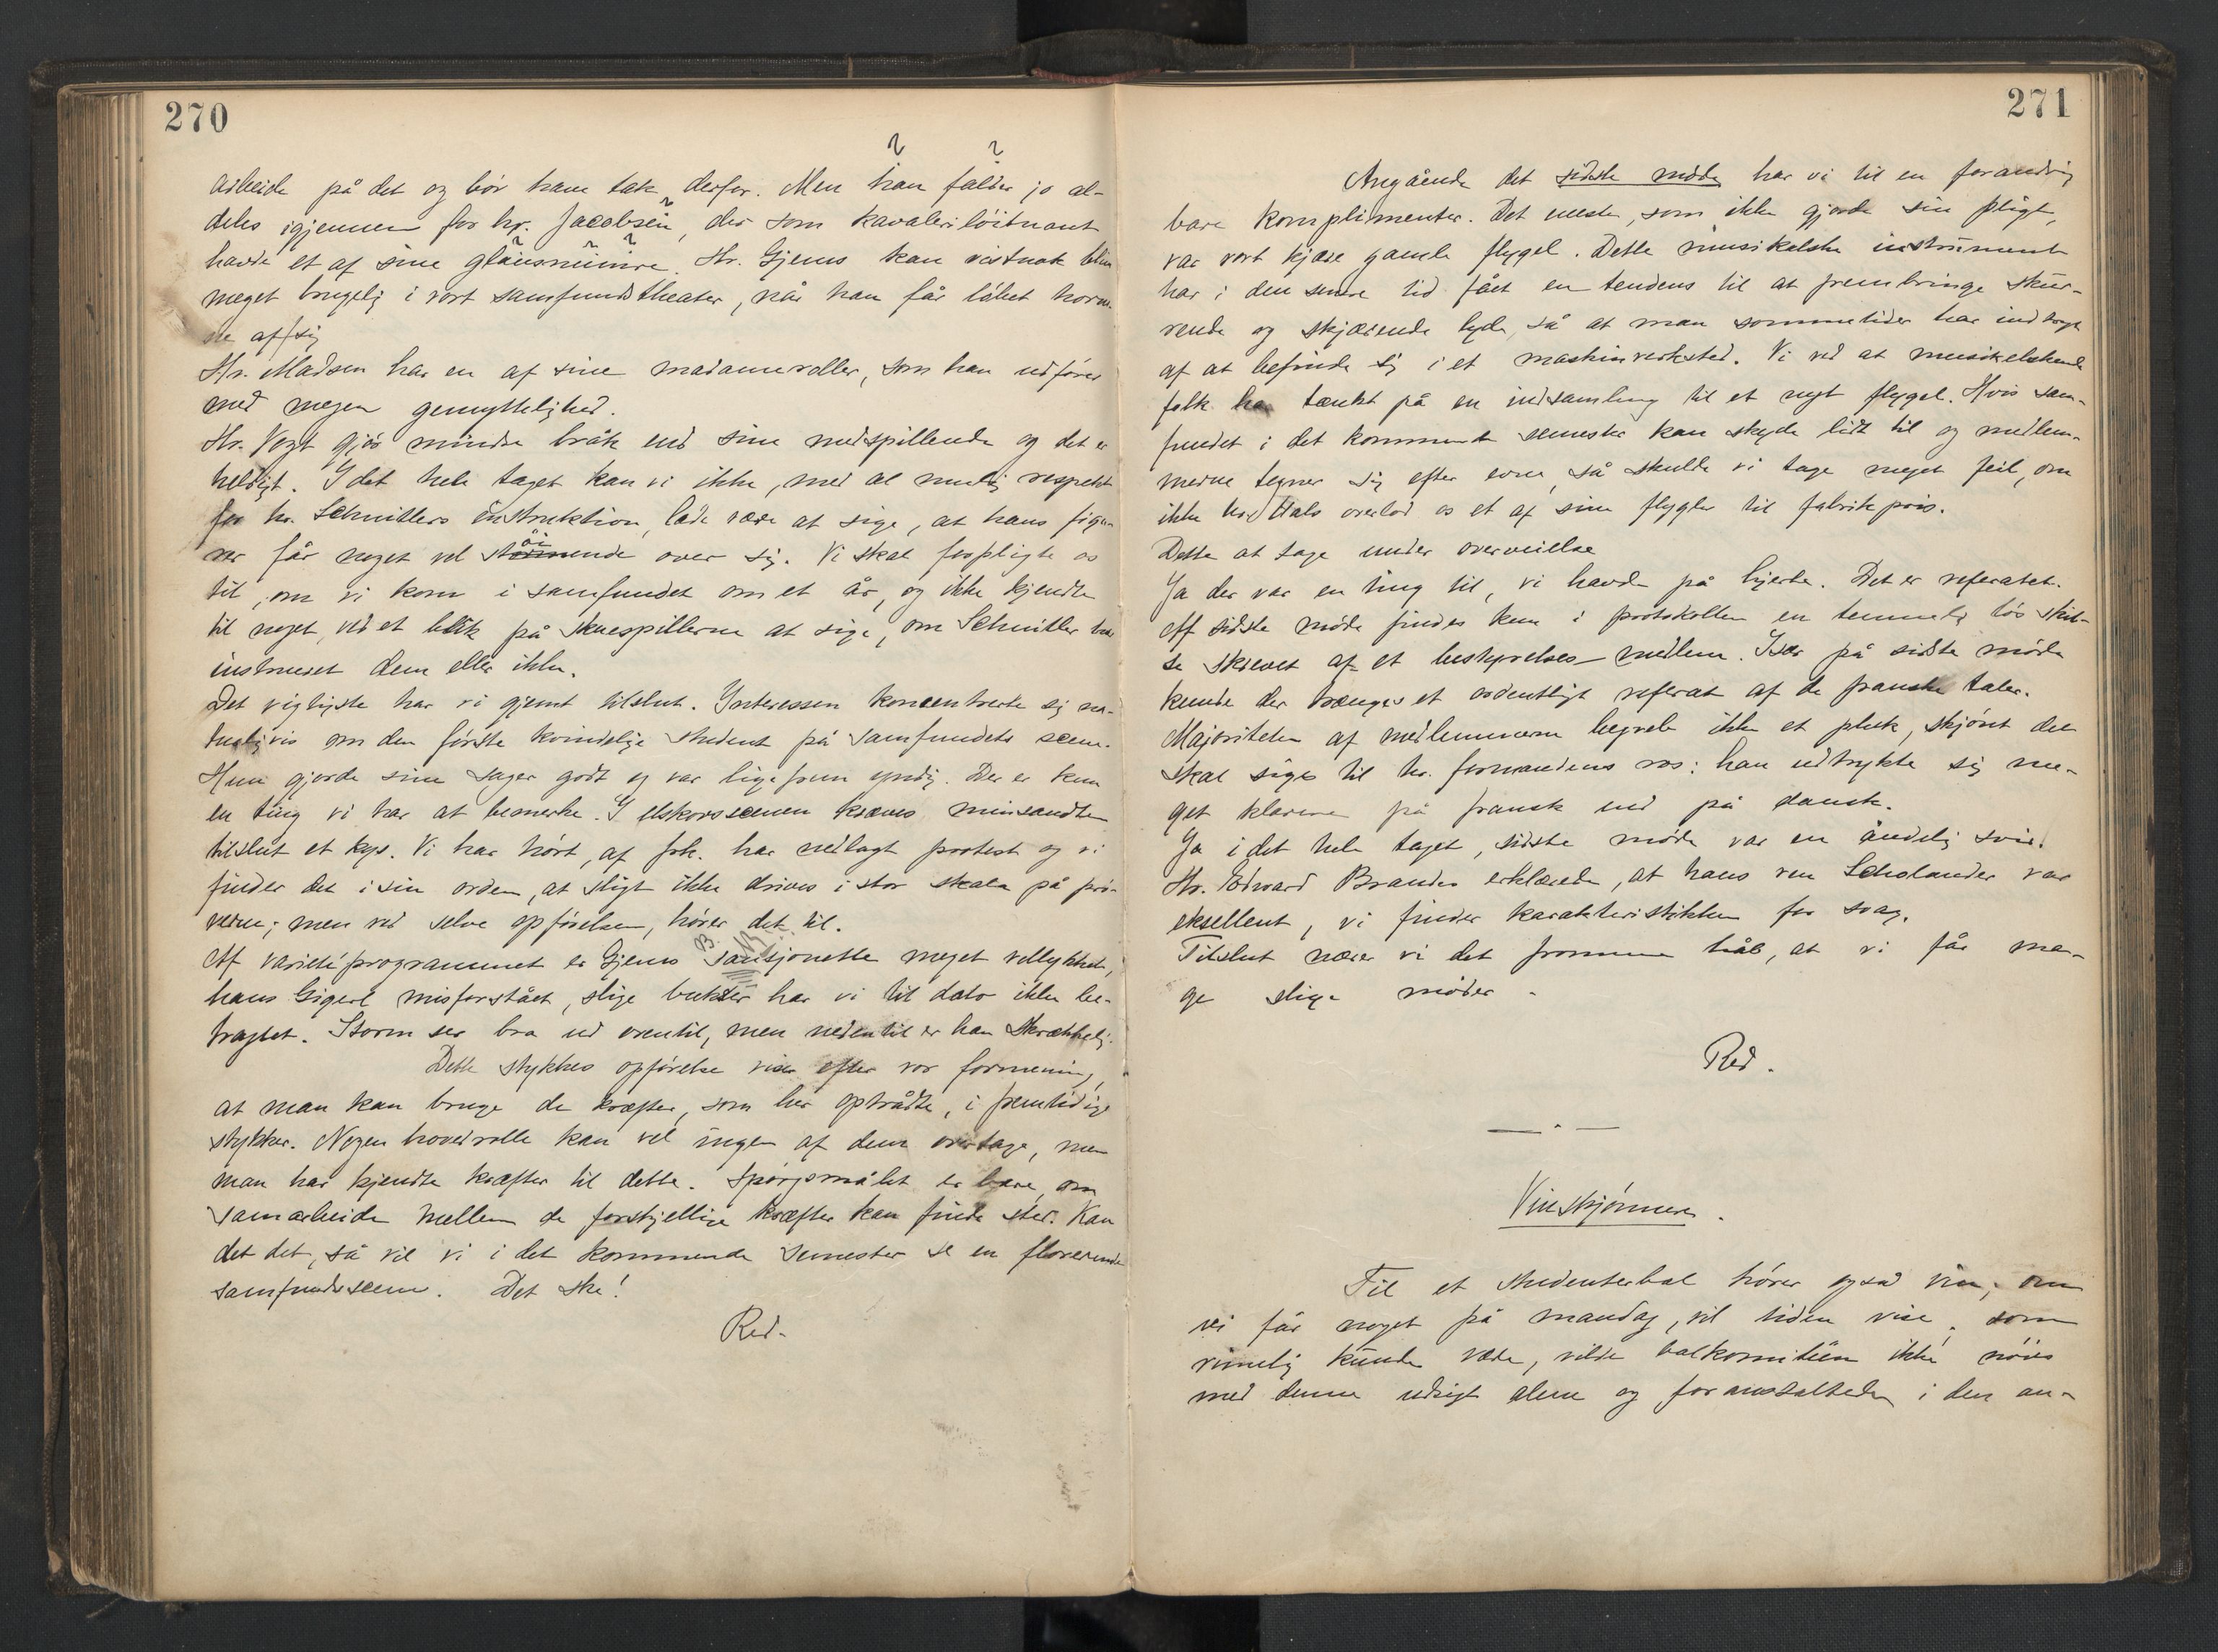 270
arbeide på det og bør have tak derfor. Men han falder jo al-
deles igjennem for hr. Jacobsen, der som kavaleriløitnant
havde et af sine glansnumre. Hr. Gjems kan vistnok blive
meget brugelig i vort samfundstheater, når han får løbet horne-
ne af sig
Hr. Madsen har en af sine madameroller, som han udfører
med megen gemyttelighed.
Hr. Vogt gjør mindre bråk end sine medspillende og det er
heldigt. I det hele taget kan vi ikke, med al mulig respekt
for hr. Schnitlers instruktion, lade være at sige, at hans figu-
rer får noget vel støiende over sig. Vi skal forpligte os
til, om vi kom i samfundet om et år, og ikke kjendte
til noget, ved et blik på skuespillerne at sige, om Schnitler har
instrueret dem eller ikke.
Det vigtigste har vi gjemt tilslut. Interessen koncentrerte sig na-
turligvis om den første kvindelige student på samfundets scene.
Hun gjorde sine sager godt og var ligefrem yndig. Der er kun
en ting vi har at bemerke. I elskovsscenen kræves minsandten
tilslut et kys. Vi har hørt, at frk. har nedlagt protest og vi
finder det i sin orden, at sligt ikke drives i stor skala på prø-
verne; men ved selve opførelsen, hører det til.
Af varietéprogrammet er Gjems sansjonette meget vellykket,
hans Gigerl misforstået, slige bukser har vi til dato ikke be-
tragtet. Storm ser bra ud oventil, men nedentil er han skrækkelig.
Dette stykkes opførelse viser efter vor formening,
at man kan bruge de kræfter, som her optrådte, i fremtidige
stykker. Nogen hovedrolle kan vel ingen af dem overtage, men
man har kjendte kræfter til dette. Spørgsmålet er bare, om
samarbeide mellem de forskjellige kræfter kan finde sted. Kan
det det, så vil vi i det kommende semester se en florerende
samfundsscene. Det ske!
Red.
271
Angående det sidste møde har vi til en forandring
bare komplimenter. Det eneste, som ikke gjorde sin pligt,
var vort kjære gamle flygel. Dette musikalske instrument
har i den senere tid fået en tendens til at frembringe skur-
rende og skjærende lyde, så at man sommetider har indtryk
af at befinde sig i et maskinverksted. Vi ved at musikelskende
folk har tænkt på en indsamling til et nyt flygel. Hvis sam-
fundet i det kommende semester kan skyde lidt til og medlem-
merne tegner sig efter evne, så skulde vi tage meget feil, om
ikke hrr Hals overlod os et af sine flygler til fabrikpris.
Dette at tage under overveielse
Ja der var en ting til, vi havde på hjerte. Det er referatet.
Af sidste møde findes kun i protokollen en temmelig løs skit-
se skrevet af et bestyrelses-medlem. Især på sidste møde
kunde der trænges et ordentligt referat af de franske taler.
Majoriteten af medlemmerne begreb ikke et pluk, skjønt det
skal siges til hr. formandens ros: han udtrykte sig me-
get klarere på fransk end på dansk.
Ja i det hele taget, sidste møde var en åndelig svir.
Hr. Edvard Brandes erklærede, at hans ven Scholander var
eksellent, vi finder karakteristikken for svag.
Tilslut nærer vi det fromme håb, at vi får man-
ge slige møder.
Red.
Vinskjønnere.
Til et studenterbal hører også vin; om
vi får noget på mandag, vil tiden vise; som
rimelig kunde være, vilde balkomiteen ikke nøies
med denne udsigt alene og foranstaltede i den an-